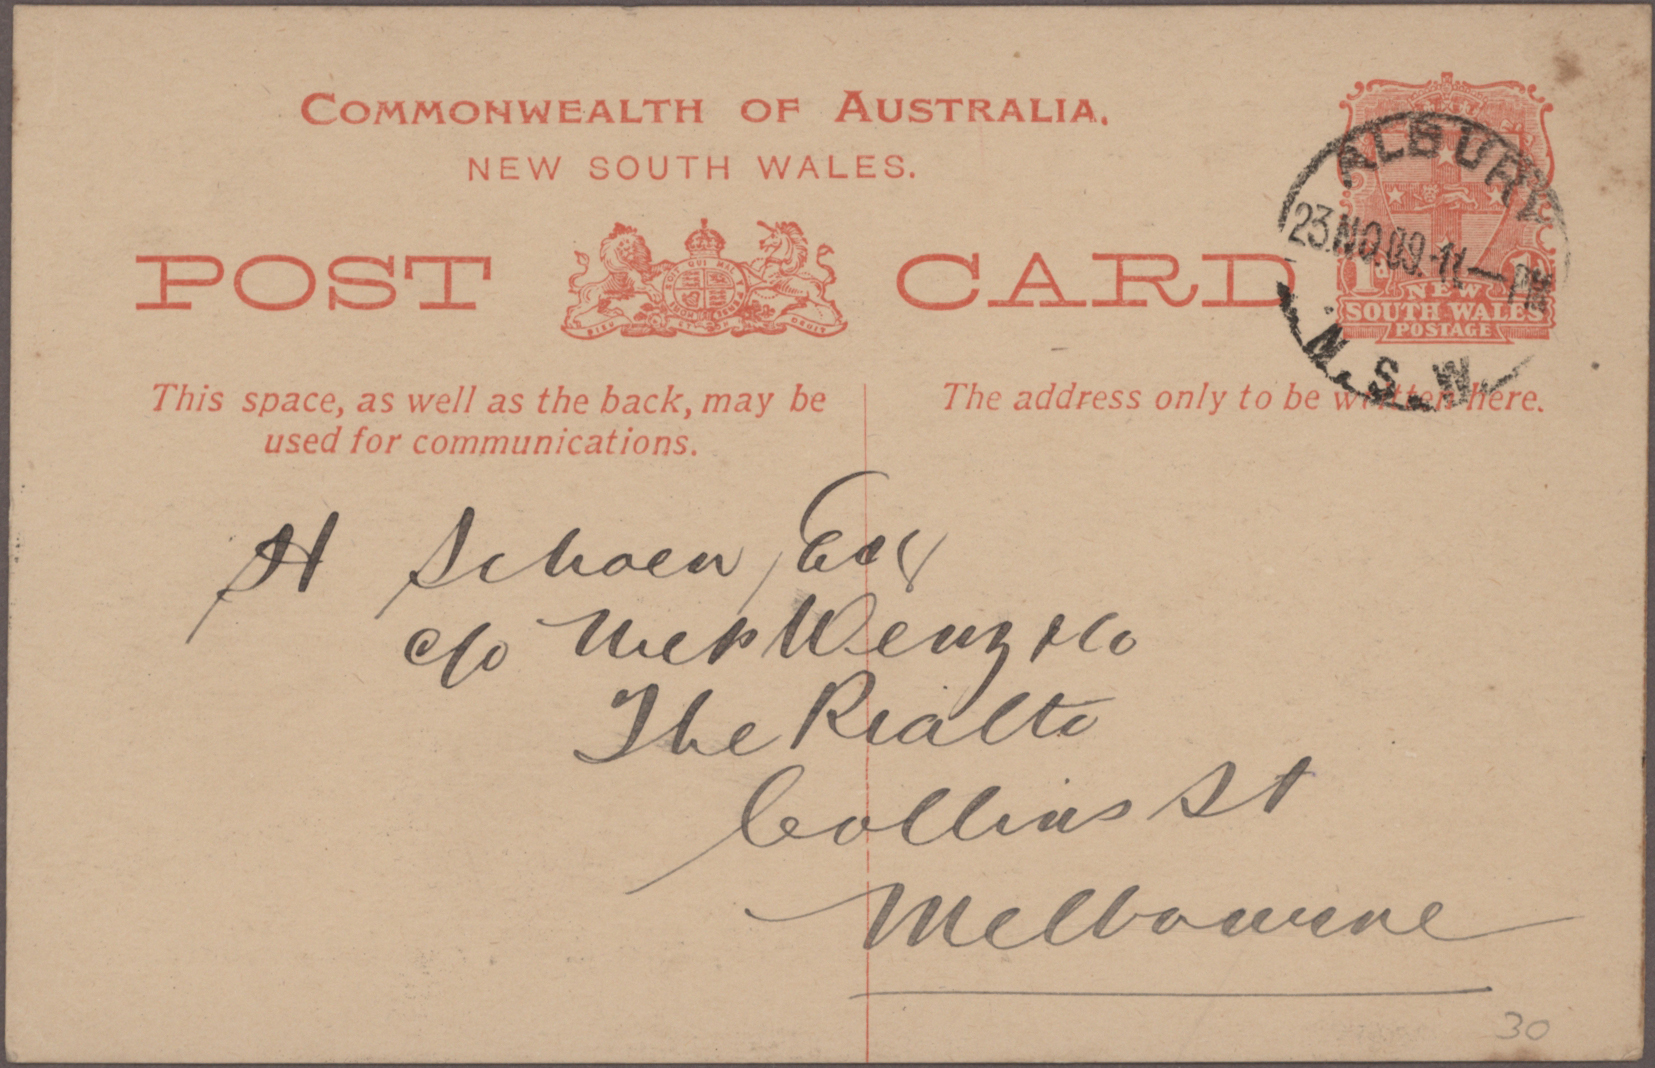 COMMONWEALTH OF AUSTRALIA.
NEW SOUTH WALES.
POST CARD
DIEU ET MON DROIT
1d 1d
NEW
SOUTH WALES
POSTAGE
ALBURY
23 NO 09. 11 — PM
N.S.W.
This space, as well as the back, may be
used for communications.
The address only to be written here.
H Schoen, Esq
c/o Wenz & Co
The Rialto
Collins St
Melbourne
30